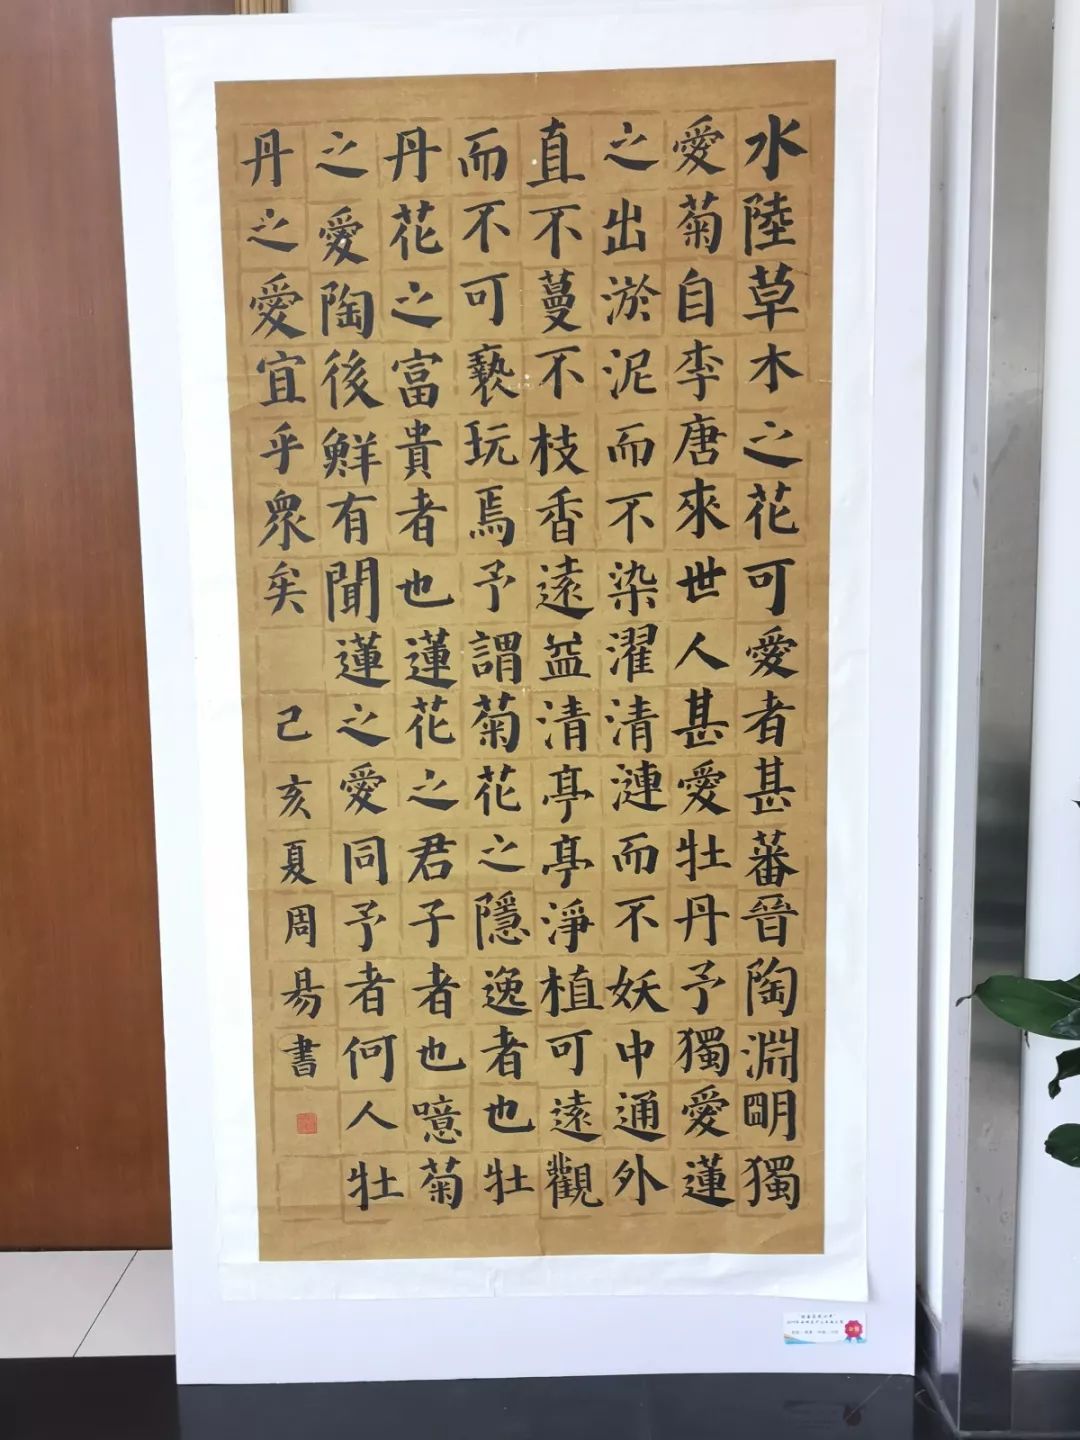 水陸草木之花可愛者甚蕃晉陶淵明獨
愛菊自李唐來世人甚愛牡丹予獨愛蓮
之出淤泥而不染濯清漣而不妖中通外
直不蔓不枝香遠益清亭亭淨植可遠觀
而不可褻玩焉予謂菊花之隱逸者也牡
丹花之富貴者也蓮花之君子者也噫菊
之愛陶後鮮有聞蓮之愛同予者何人牡
丹之愛宜乎衆矣
己亥夏周易書